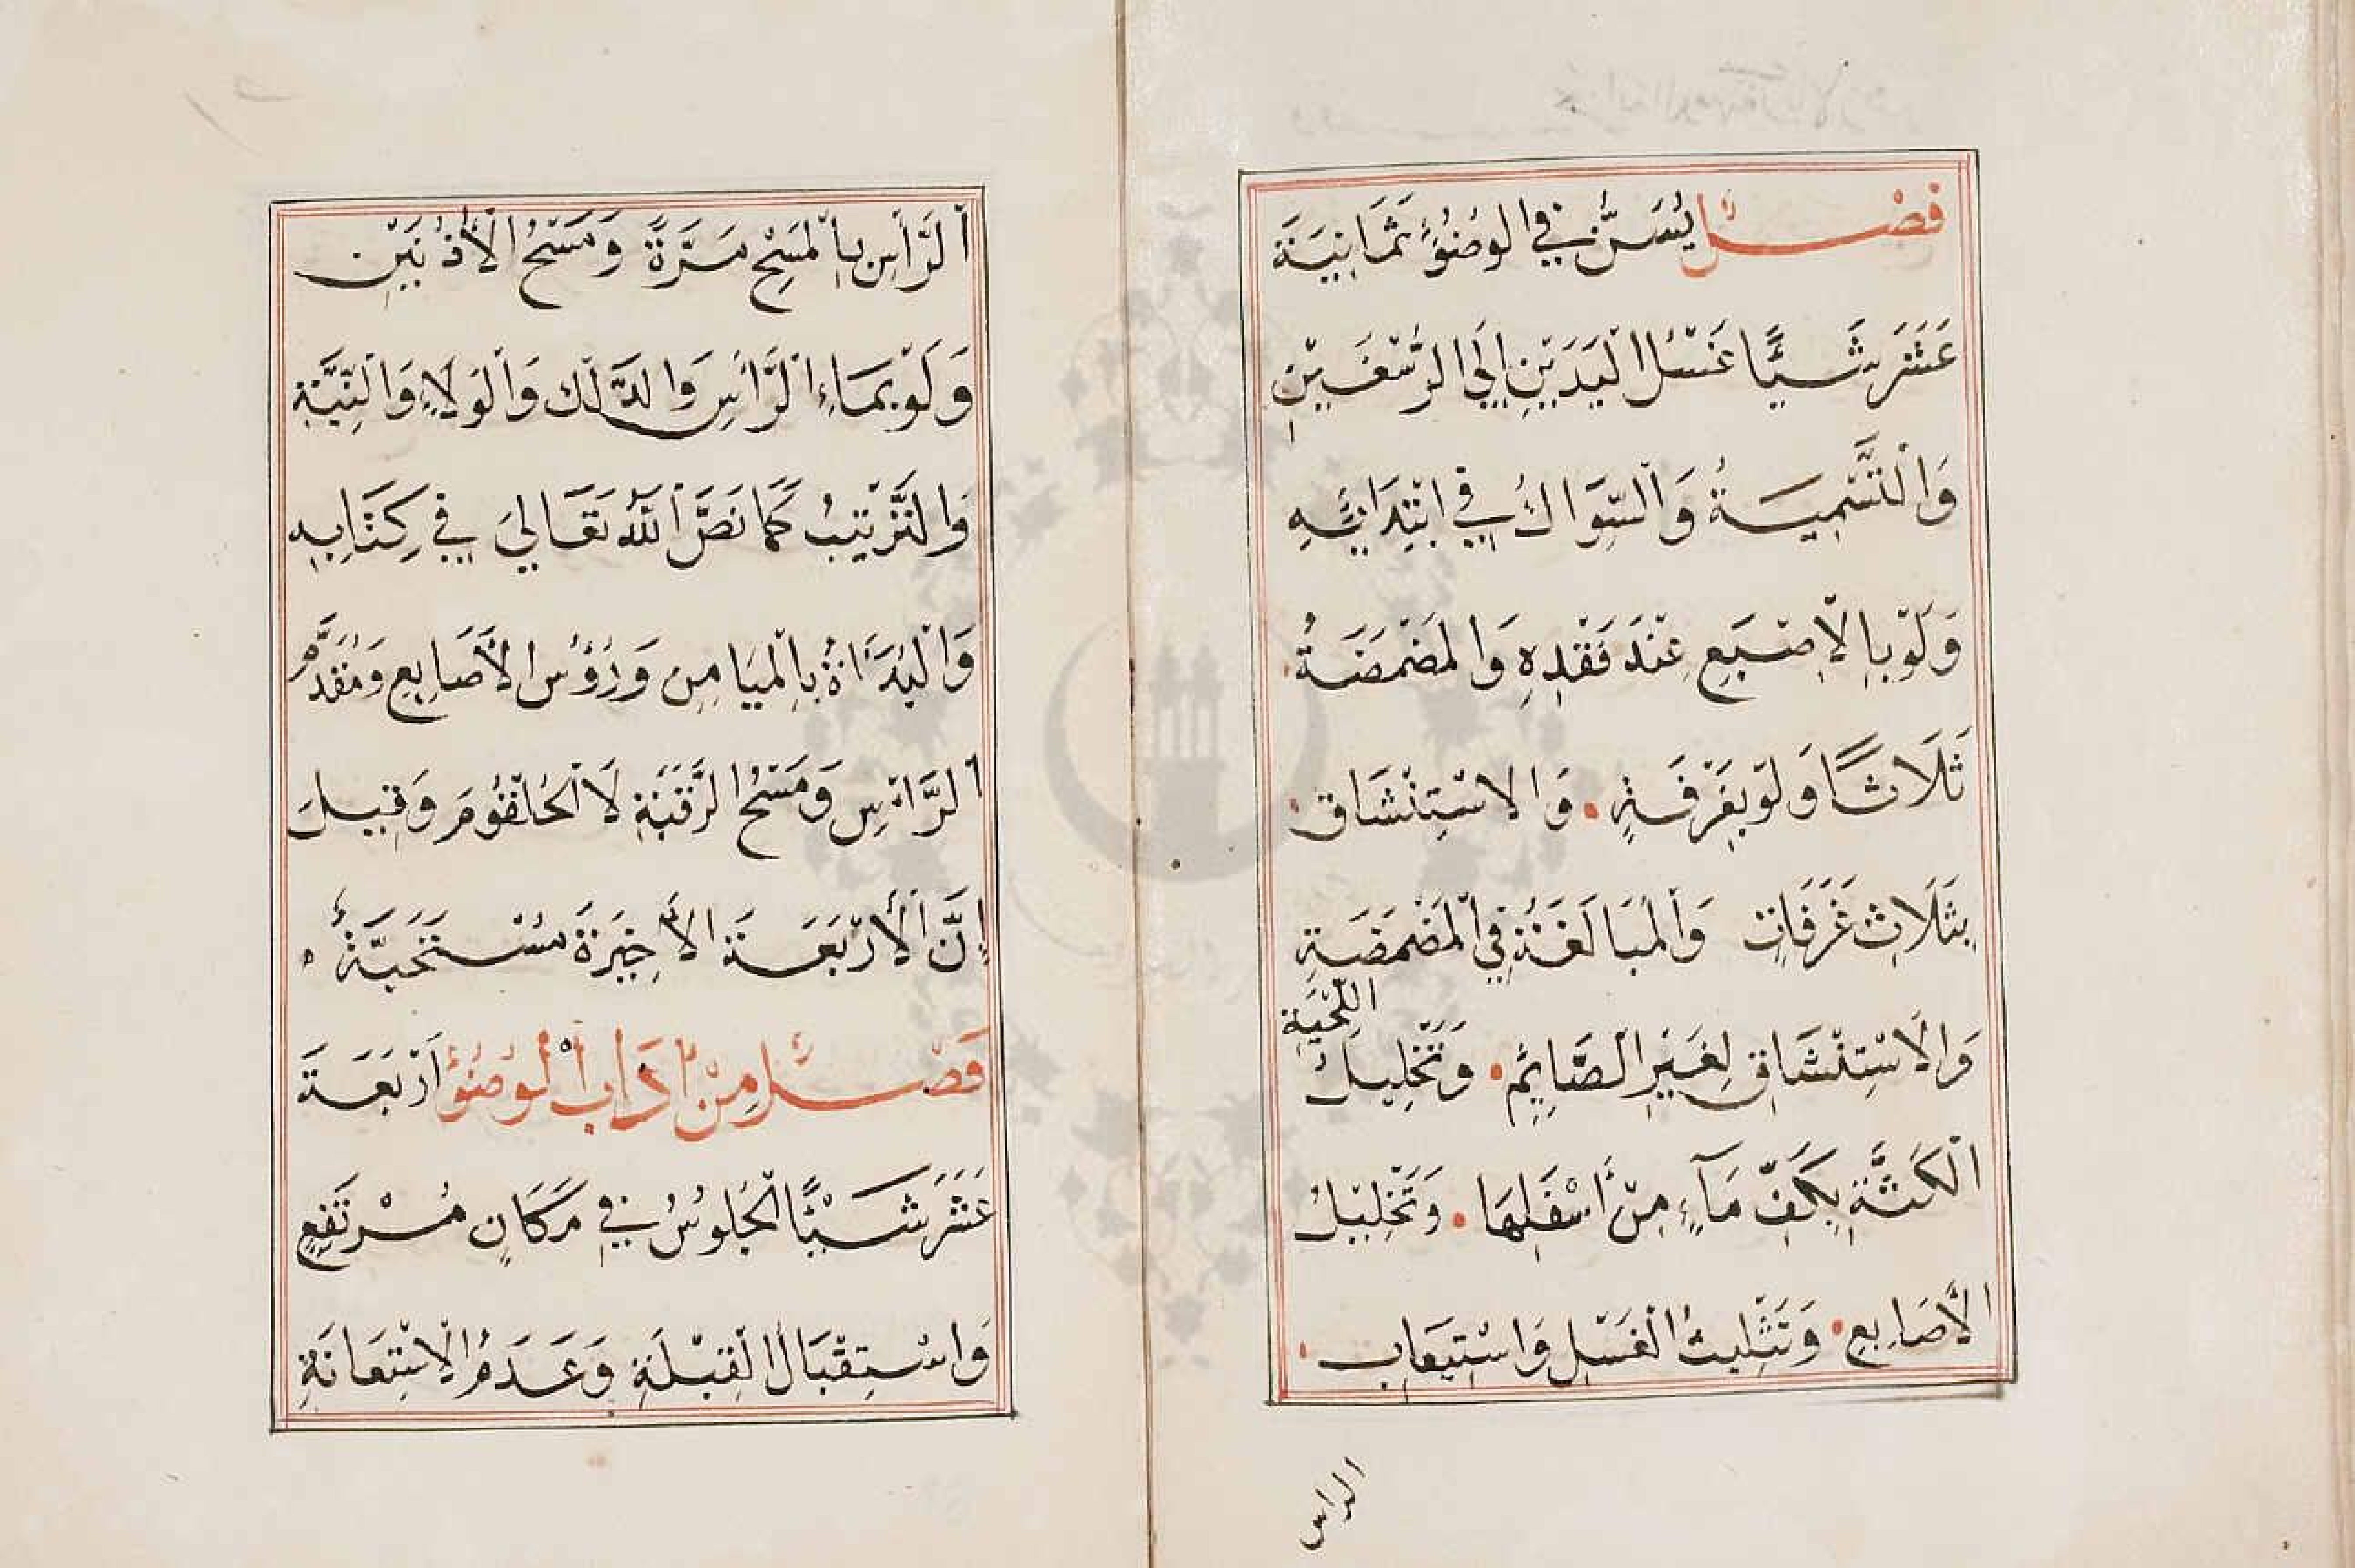 فَصْلٌ يُسَنُّ فِي الوُضُوْءِ ثَمَانِيَةَ
عَشَرَ شَيْئًا غَسْلُ الْيَدَيْنِ اِلَي الرُّسْغَيْنِ
وَالْتَّسْمِيَةُ وَالْسِّوَاكُ فِي ابْتِدَائِهِ
وَلَوْ بِالْاِصْبَعِ عِنْدَ فَقْدِهِ وَالْمَضْمَضَةُ
ثَلَاثًا وَلَوْ بِغَرْفَةٍ • وَالاسْتِنْشَاق
بِثَلَاثِ غَرَفَاتٍ وَالْمُبَالَغَةُ فِي الْمَضْمَضَةِ
وَالاسْتِنْشَاقِ لِغَيْرِ الْصَّائِمِ • وَتَخْلِيلُ اللِّحْيَةِ
الْكَثَّةِ بِكَفِّ مَآءٍ مِنْ أَسْفَلِهَا • وَتَخْلِيْلُ
الْأَصَابِعِ • وَتَثْلِيثُ الْغَسْلِ وَاسْتِيعَاب
الراس
اَلرَّأْسِ بِالْمَسْحِ مَرَّةً وَمَسْحُ الْأُذُنَيْنِ
وَلَوْ بِمَاءِ الْرَّأسِ وَالدَّلْك وَالْوَلَاءِ وَالنِّيَّة
وَالتَّرْتِيْبُ كَمَا نَصَّ اللّٰهُ تَعَالي فِي كِتَابِهِ
وَالْبُدَاةُ بِالْمَيَامِنِ وَرُؤُسِ الْأَصَابِعِ وَمُقَدَّمِ
الرَّاسِ وَمَسْحُ الرَّقَبَةِ لَا الْحُلْقُومَ وَقِيلَ
اِنَّ الْأَرْبَعَةَ الْأَخِيْرَةَ مُسْتَحَبَّةٌ
فَصْلٌ مِنْ اَدَابِ الْوُضُوْءِ اَرْبَعَةَ
عَشَرَ شَيْئًا الْجُلُوسُ فِي مَكَانٍ مُرْتَفِعٍ
وَاسْتِقْبَالُ الْقِبْلَةِ وَعَدَمُ الْاِسْتِعَانَةِ